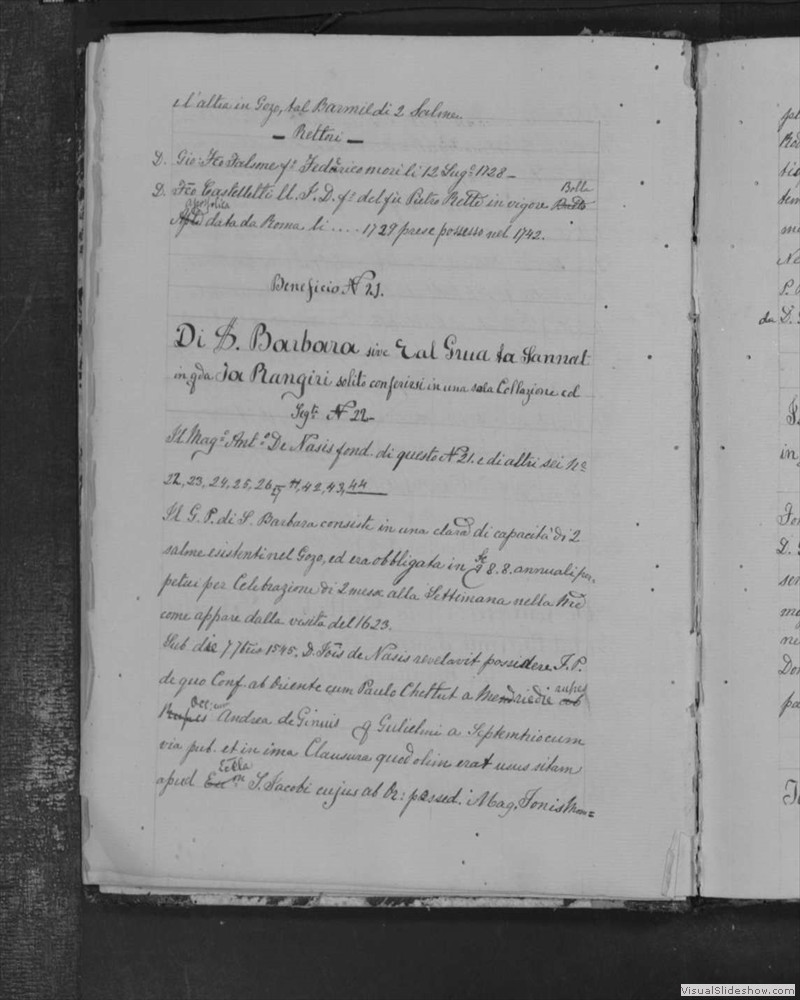 e l'altra in Gozo, tal Barmil di 2 Salme.
— Rettori —
D. Gio: Fco Palome fo Federico mori li 12 Lugo 1728 —
D. Fco Castelletti U. J. D. fo del fù Pietro Rettò in vigore Bolla
apostolica data da Roma li .... 1729 prese possesso nel 1742.
Beneficio No 21.
Di S. Barbara sive Tal Grua ta Sannat
in qda Ta Rangiri solito conferirsi in una sola Collazione col
Segte No 22 —
Il Mago Anto De Nasis fond. di questo No 21. e di altri sei No
22, 23, 24, 25, 26, 42, 43, 44
Il G. P. di S. Barbara consiste in una clara di capacità di 2
salme esistenti nel Gozo, ed era obbligata in 8. 8. annuali per-
petui per Celebrazione di 2 messe alla Settimana nella
come appare dalla visita del 1623.
Sub die 7 7bris 1545. D. Jois de Nasis revelavit possidere J. P.
de quo Conf. ab Oriente cum Paulo Chettut a Meridie rupes
Occ: Andrea de Ginuis q Gulielmi a Septemtrio cum
via pub. et in ima Clausura quod olim erat usus sitam
apud Eccla S. Jacobi cujus ab Or: possed. Mag. Jonis Mom=
VisualSlideshow.com